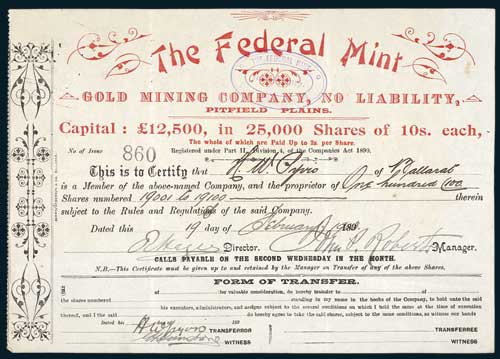 The Federal Mint
THE FEDERAL MINT
GOLD MINING COMPANY, NO LIABILITY,
PITFIELD PLAINS.
Capital: £12,500, in 25,000 Shares of 10s. each,
The whole of which are Paid Up to 2s per Share.
No of Issue 860 Registered under Part II., Division 1, of the Companies Act 1890.
This is to Certify that W of Ballarat
is a Member of the above-named Company, and the proprietor of One hundred (100)
Shares numbered 19001 to 19100 therein
subject to the Rules and Regulations of the said Company.
Dated this 19 day of February 189
Director. John A. Roberts Manager.
CALLS PAYABLE ON THE SECOND WEDNESDAY IN THE MONTH.
N.B.—This Certificate must be given up to and retained by the Manager on Transfer of any of the above Shares.
FORM OF TRANSFER.
for valuable consideration, do hereby transfer to
the shares numbered standing in my name in the books of the Company, to hold unto the said
his executors, administrators, and assigns subject to the several conditions on which I held the same at the time of execution
thereof, and I the said do hereby agree to take the said shares, subject to the same conditions, as witness our hands
Dated the day of 189
TRANSFEROR TRANSFEREE
WITNESS WITNESS